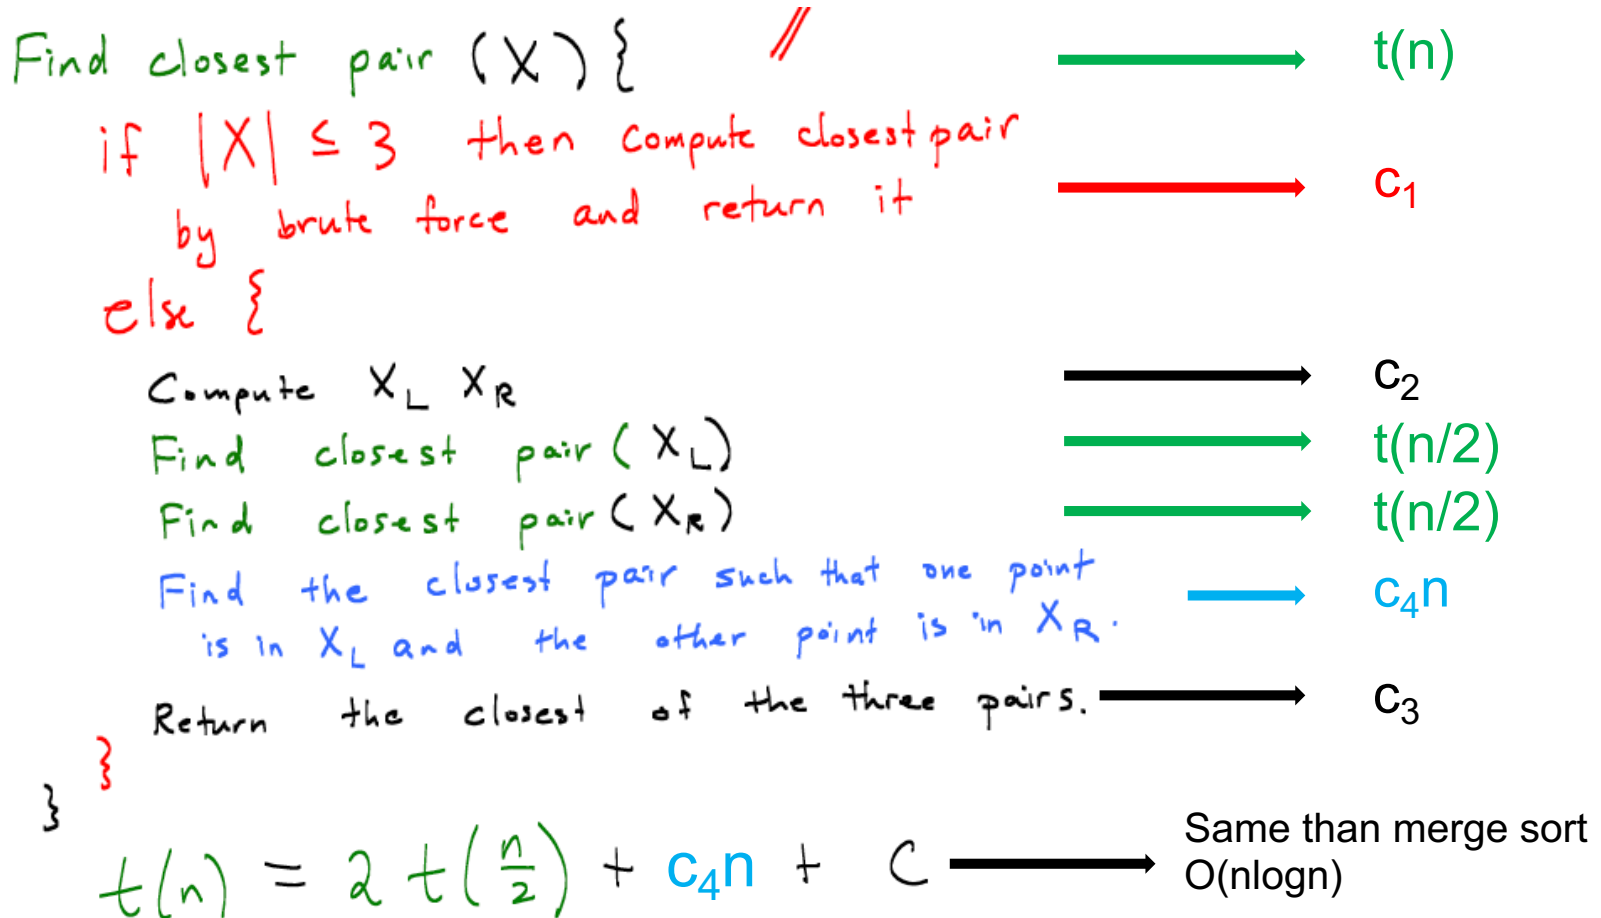 Find closest pair (X) { // t(n)
if |X| ≤ 3 then compute closest pair
by brute force and return it c₁
else {
Compute X_L X_R c₂
Find closest pair (X_L) t(n/2)
Find closest pair (X_R) t(n/2)
Find the closest pair such that one point c₄n
is in X_L and the other point is in X_R.
Return the closest of the three pairs. c₃
}
}
t(n) = 2 t(n/2) + c₄n + C
Same than merge sort
O(nlogn)